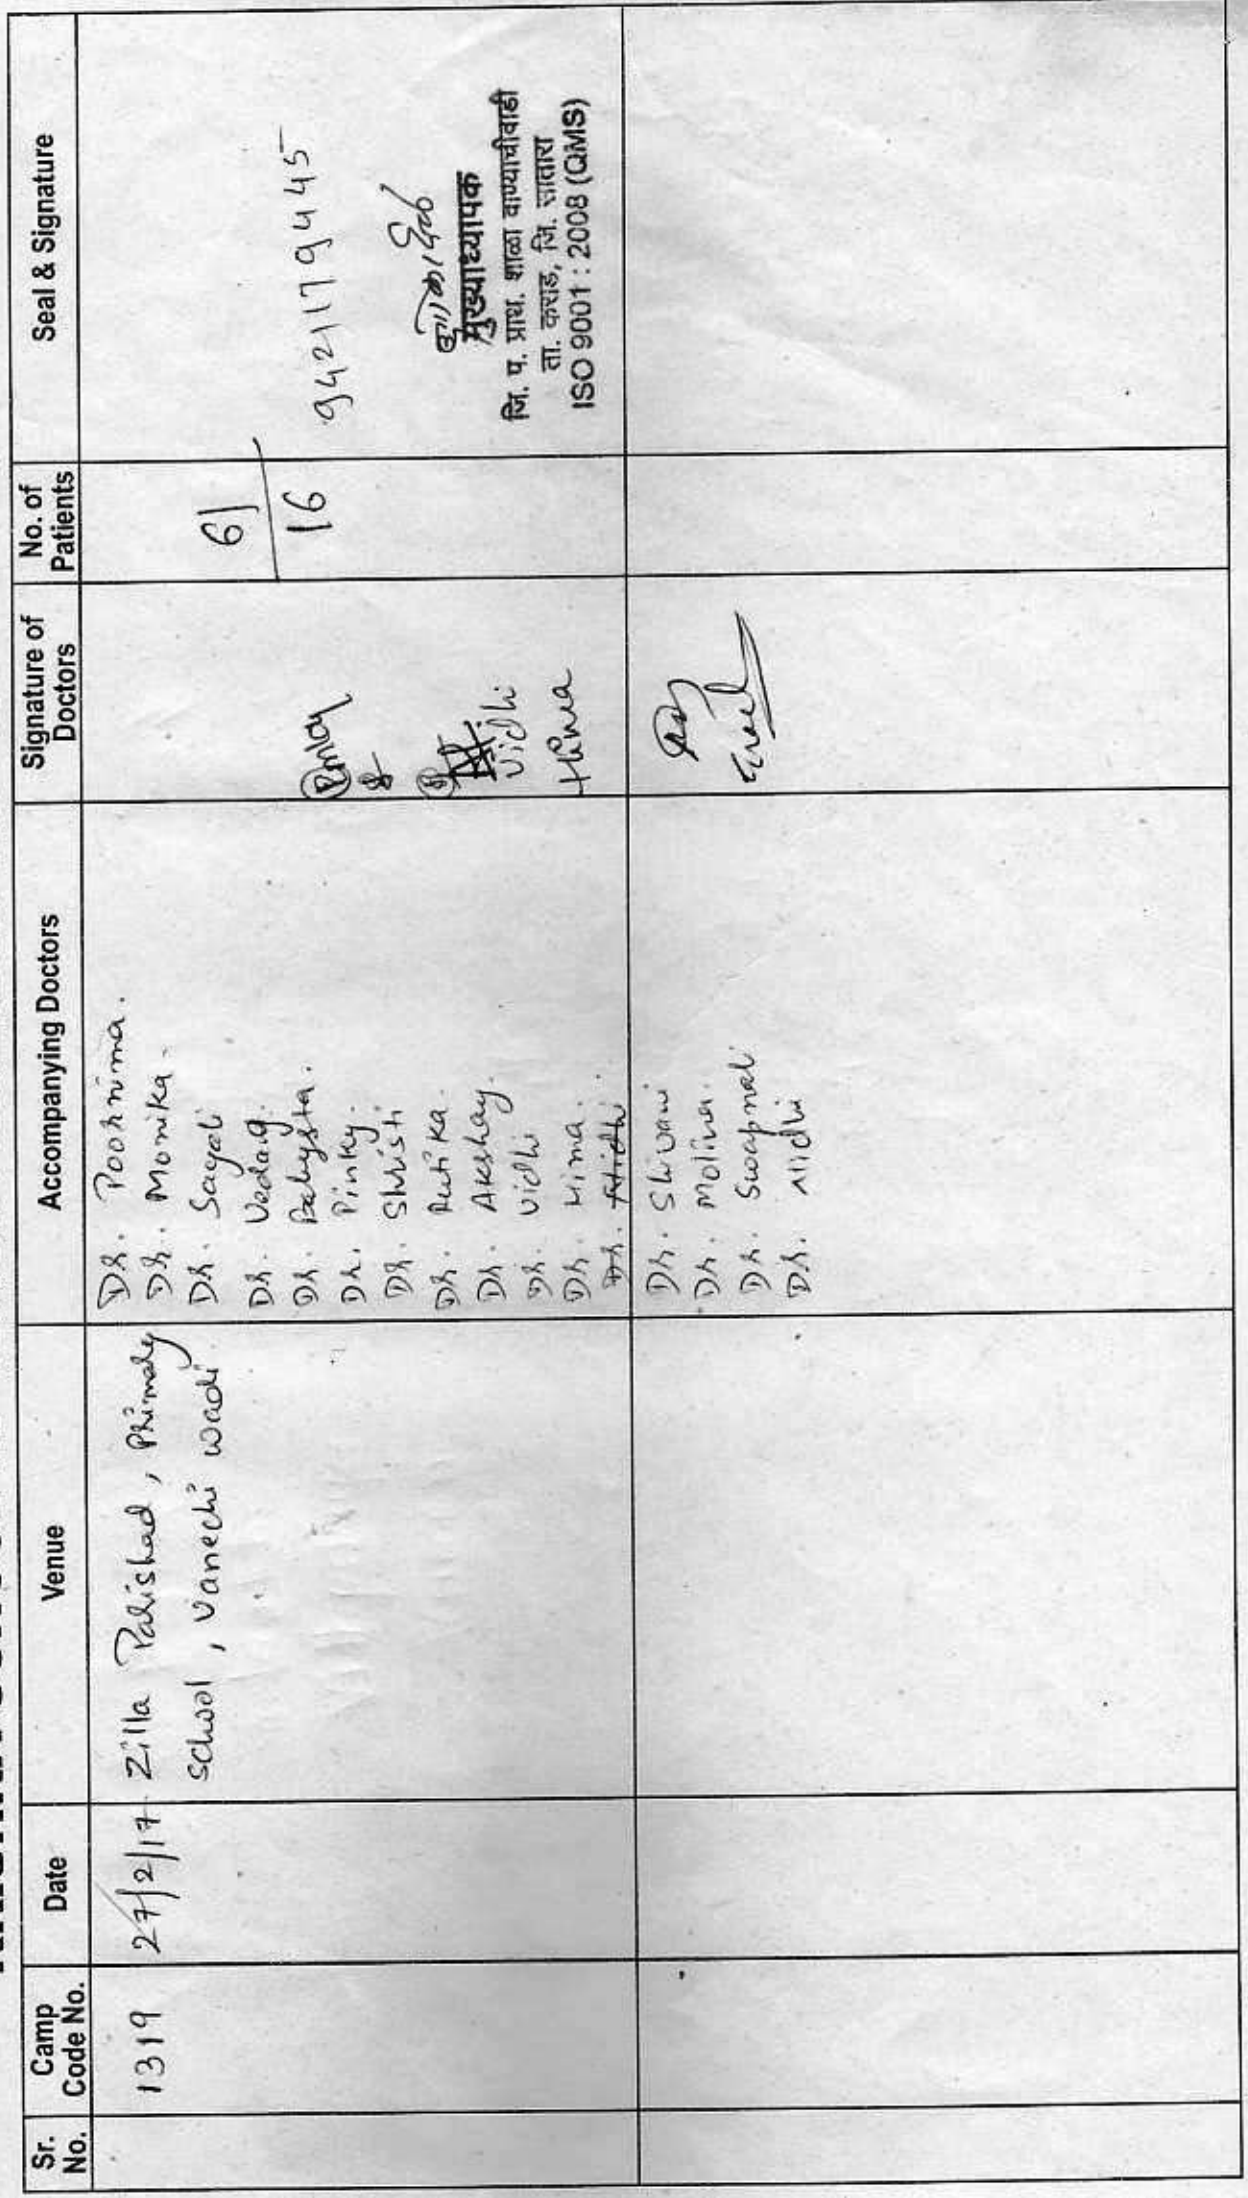 Sr. No.
Camp Code No.
Date
Venue
Accompanying Doctors
Signature of Doctors
No. of Patients
Seal & Signature
1319
27/2/17
Zilla Parishad, Primary
School, Vanechi wadi
Dr. Poornima.
Dr. Monika.
Dr. Sayali
Dr. Vedang.
Dr.
Dr. Pinky.
Dr. Shristi
Dr. Rutika.
Dr. Akshay.
Dr. Vidhi
Dr. Hima.
Dr. Nidhi
Pinky
Vidhi
Hima
61
16
9421179445
मुख्याध्यापक
जि. प. प्राथ. शाळा वाण्याचीवाडी
ता. कराड, जि. सातारा
ISO 9001 : 2008 (QMS)
Dr. Shivani
Dr. Molina.
Dr. Swapnali
Dr. Nidhi